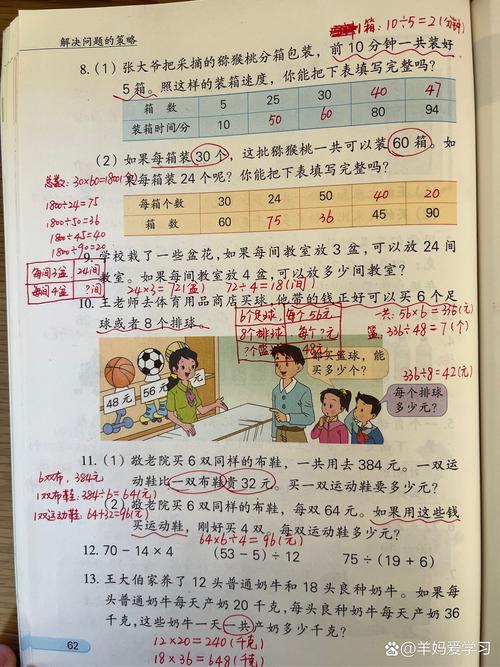 解决问题的策略
1箱：10÷5=2(分钟)
8.（1）张大爷把采摘的猕猴桃分箱包装，前10分钟一共装好
5箱。照这样的装箱速度，你能把下表填写完整吗？
箱 数 5 25 30 40 47
装箱时间/分 10 50 60 80 94
（2）如果每箱装30个，这批猕猴桃一共可以装60箱。如
总数：30×60=1800(个)
果每箱装24个呢？你能把下表填写完整吗？
1800÷24=75
1800÷50=36
1800÷45=40
1800÷90=20
每箱个数 30 24 50 40 20
箱 数 60 75 36 45 90
9.学校栽了一些盆花，如果每间教室放3盆，可以放24间
教室。如果每间教室放4盆，可以放多少间教室？
每间3盆 24间
每间4盆 ?间
24×3=72(盆) 72÷4=18(间)
10.王老师去体育用品商店买球，他带的钱正好可以买6个足
球或者8个排球。
一共：56×6=336(元)
篮：336÷48=7(个)
336÷8=42(元)
6个足球 每个56元
8个排球 每个?元
?个篮球 48元
都买篮球，能
买多少个？
每个排球
多少元？
48元
56元
?元
11.（1）敬老院买6双同样的布鞋，一共用去384元。一双运
动鞋比一双布鞋贵32元。买一双运动鞋要多少元？
6双布，384元
1双布鞋：384÷6=64(元)
1双运动鞋：64+32=96(元)
（2）敬老院买6双同样的布鞋，每双64元。如果用这些钱
买运动鞋，刚好买4双，每双运动鞋多少元？
64×6÷4=96(元)
12. 70-14×4 （53-5）÷12 75÷（19+6）
13.王大伯家养了12头普通奶牛和18头良种奶牛。如果每
头普通奶牛每天产奶20千克，每头良种奶牛每天产奶36
千克，这些奶牛一天一共产奶多少千克？
12×20=240(千克)
18×36=648(千克)
62
@羊妈爱学习